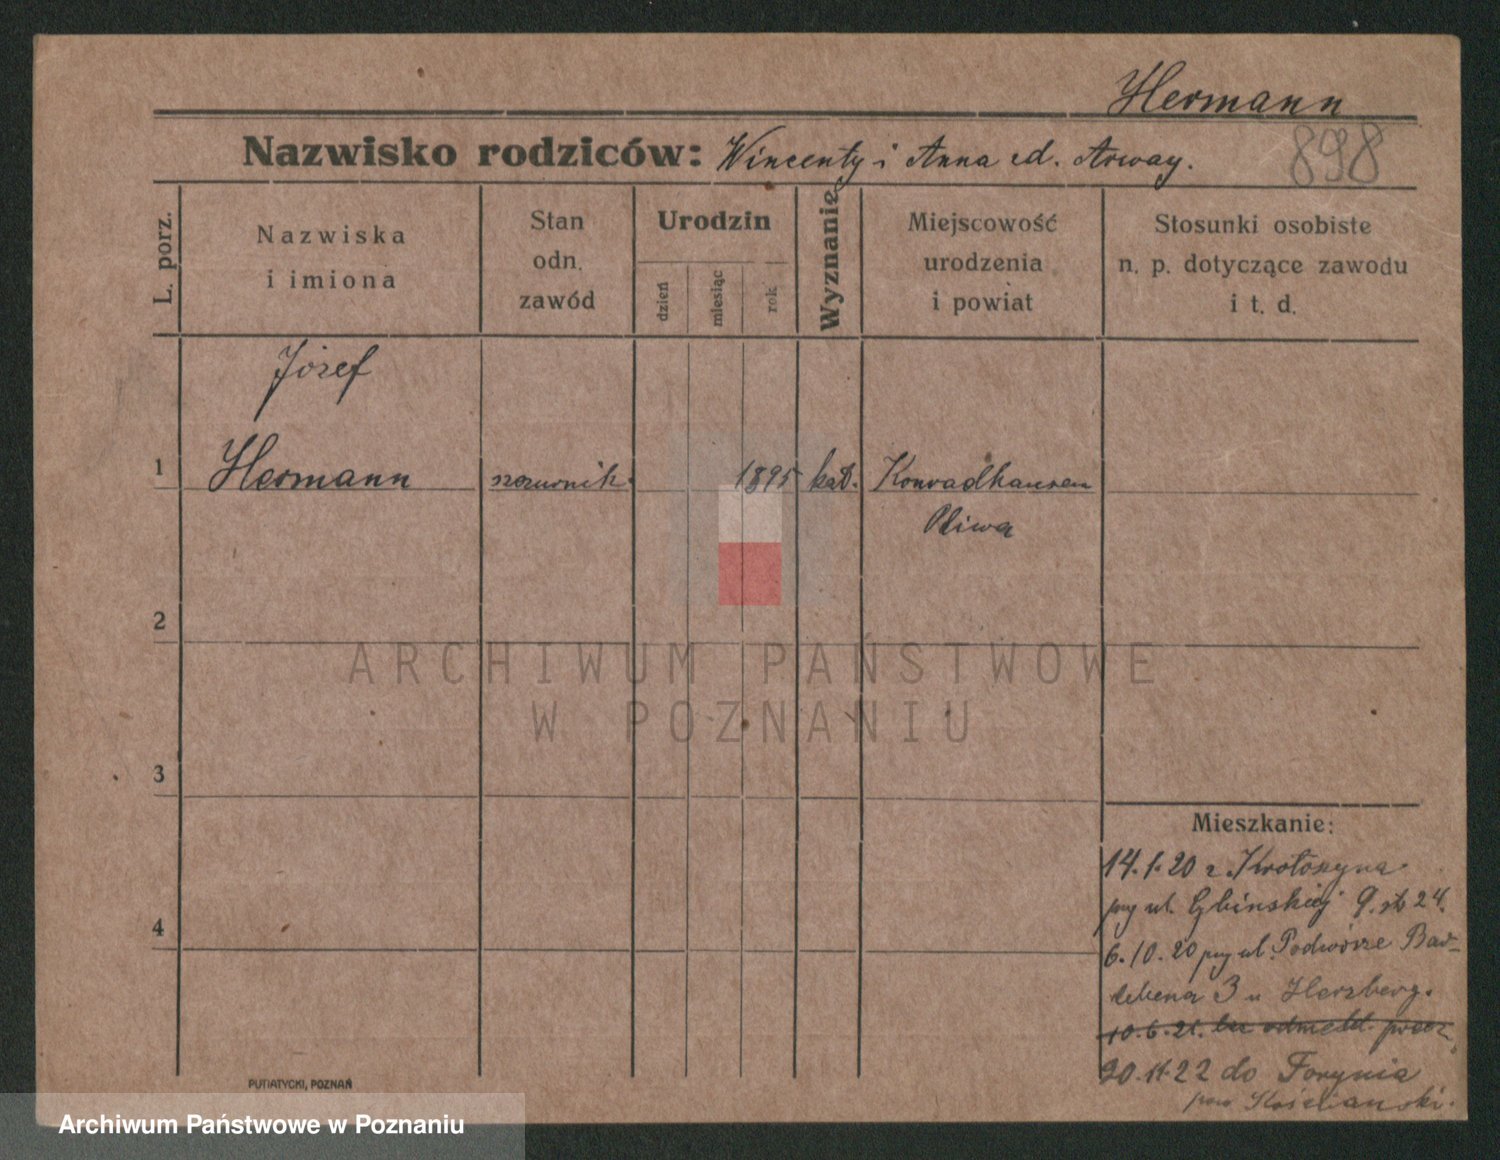 Hermann
Nazwisko rodziców: Wincenty i Anna zd. Arway.
898
L. porz.
Nazwiska
i imiona
Stan
odn.
zawód
Urodzin
dzień
miesiąc
rok
Wyznanie
Miejscowość
urodzenia
i powiat
Stosunki osobiste
n. p. dotyczące zawodu
i t. d.
Józef
1 Hermann 1895 kat. Konradhausen
2
ARCHIWUM PAŃSTWOWE
W POZNANIU
3
Mieszkanie:
14.1.20 z Krotoszyna
przy ul. Gbińskiej 9. st 24.
4
6.10.20 przy ul. Podwórze Bar-
3 u Herzberg.
10.6.21. bez odmeld. precz
20.11.22 do Forynia
pow Kościański.
PUTIATYCKI, POZNAŃ
Archiwum Państwowe w Poznaniu